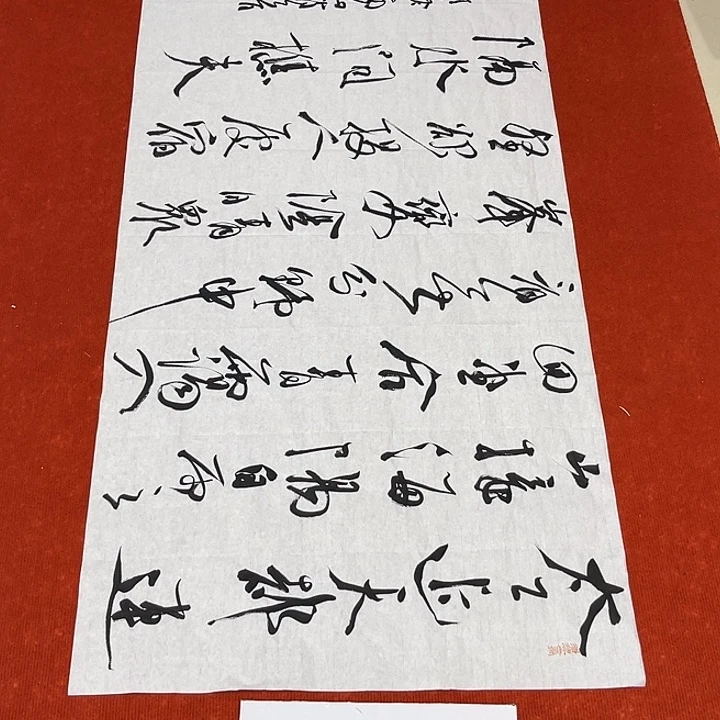 太乙近天都連
山接海隅白雲
回望合青靄入
看無分野中
峰變陰晴衆
壑殊欲投人處宿
隔水問樵夫